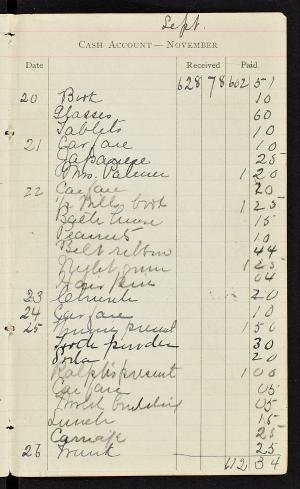 Sept.
CASH ACCOUNT — NOVEMBER
Date Received Paid
628 78 602 51
20 Book 10
Glasses 60
Tablets 10
21 Carfare 10
Japanese 25
Mrs. Palmer 1 20
22 Carfare 20
book 1 25
Bath house 15
Peanuts 10
Belt ribbon 44
Night gown 1 25
04
23 Church 20
24 Carfare 10
25 present 1 50
Tooth powder 30
Soda 20
Ralph's present 1 00
Carfare 05
building 05
Lunch 15
Carriage 25
26 Trunk 25
612 34